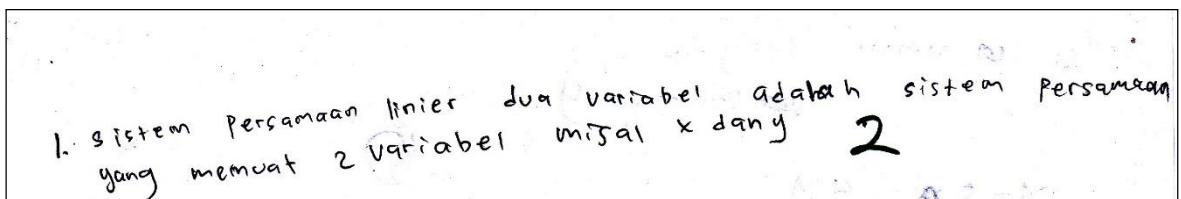 1. sistem persamaan linier dua variabel adalah sistem persamaan
yang memuat 2 variabel misal x dan y 2